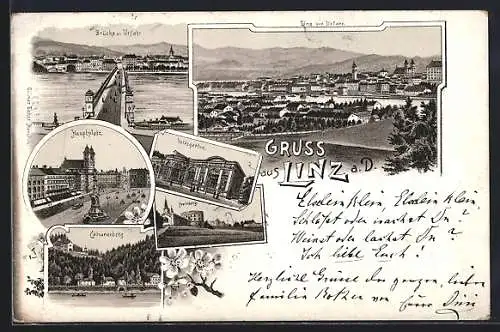 Brücke n. Urfahr
Linz von Westen.
Hauptplatz.
Volksgarten.
Freinberg.
Calvarienberg
GRUSS
aus LINZ a. D.
Elselein klein, Elselein klein
Schläfst oder wachst Du?
Weinst oder lachst Du?
Ich liebe Euch!
Herzliche Grüsse der ganzen, lieben
Familie von Eurer